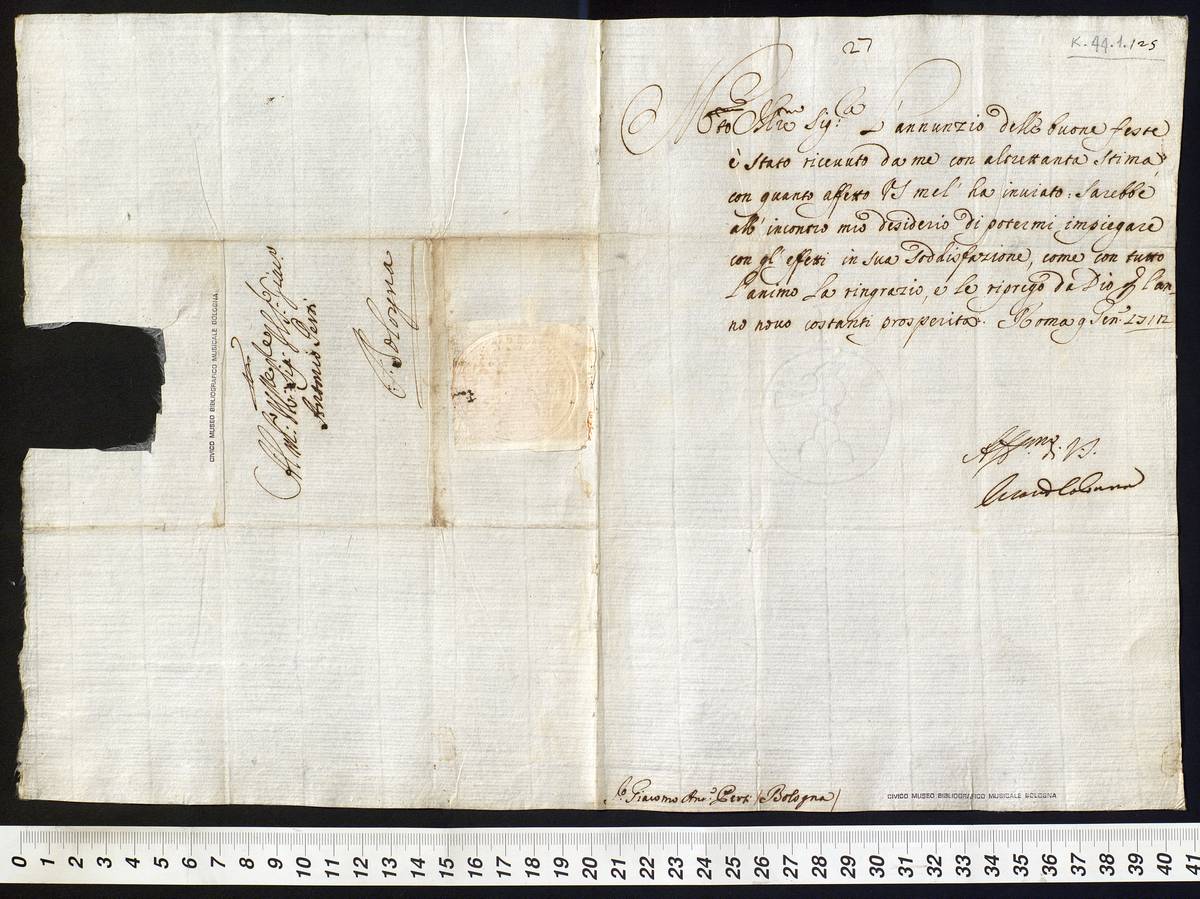 27
K.44.1.125
M.to Ill.re Sig.
L'annunzio delle buone feste
è stato ricevuto da me con altrettanta stima,
con quanto affetto VS me l'ha inviato: Sarebbe
all'incontro mio desiderio di potermi impiegare
con gl'effetti in sua soddisfazione, come con tutto
l'animo la ringrazio, e le riprego da Dio per l'an-
no novo costanti prosperità. Roma 9 Gen.
Aff.mo di V.S.
S. Giacomo Ant.o Perti (Bologna)
CIVICO MUSEO BIBLIOGRAFICO MUSICALE BOLOGNA
Antonio Perti
Bologna
CIVICO MUSEO BIBLIOGRAFICO MUSICALE BOLOGNA
0 1 2 3 4 5 6 7 8 9 10 11 12 13 14 15 16 17 18 19 20 21 22 23 24 25 26 27 28 29 30 31 32 33 34 35 36 37 38 39 40 41